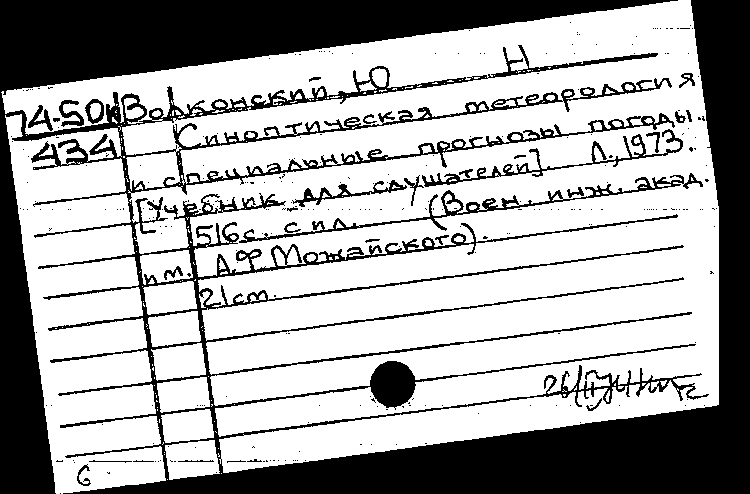 74-50к Волконский, Ю Н
434 Синоптическая метеорология
и специальные прогнозы погоды.
[Учебник для слушателей]. Л., 1973.
516с. с ил. (Воен. инж. акад.
им. А.Ф. Можайского).
21см.
6